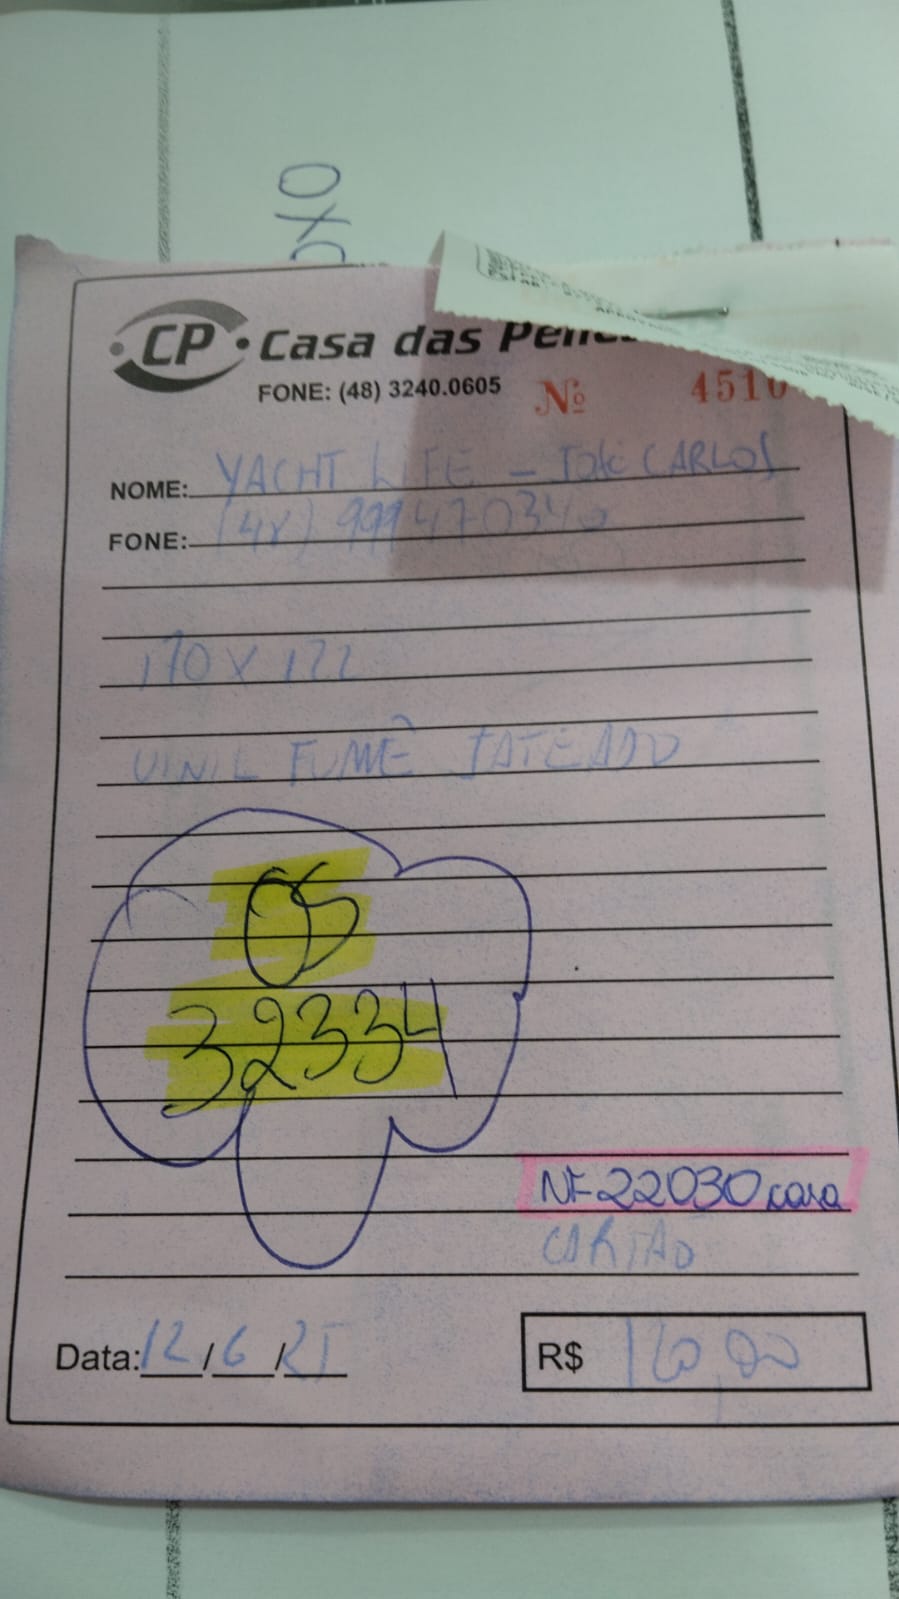 OXO
CP Casa das
FONE: (48) 3240.0605 Nº 4510
NOME: YACHT LIFE - José CARLOS
FONE: (48) 999470340
170 X 122
VINIL FUMÊ JATEADO
OS
32334
NF-22030 casa
CARTÃO
Data: 12/6/25 R$ 160,00